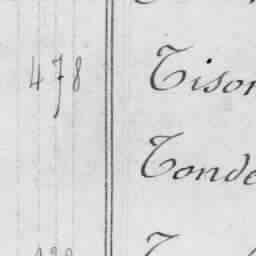 478 Tison
Tonde